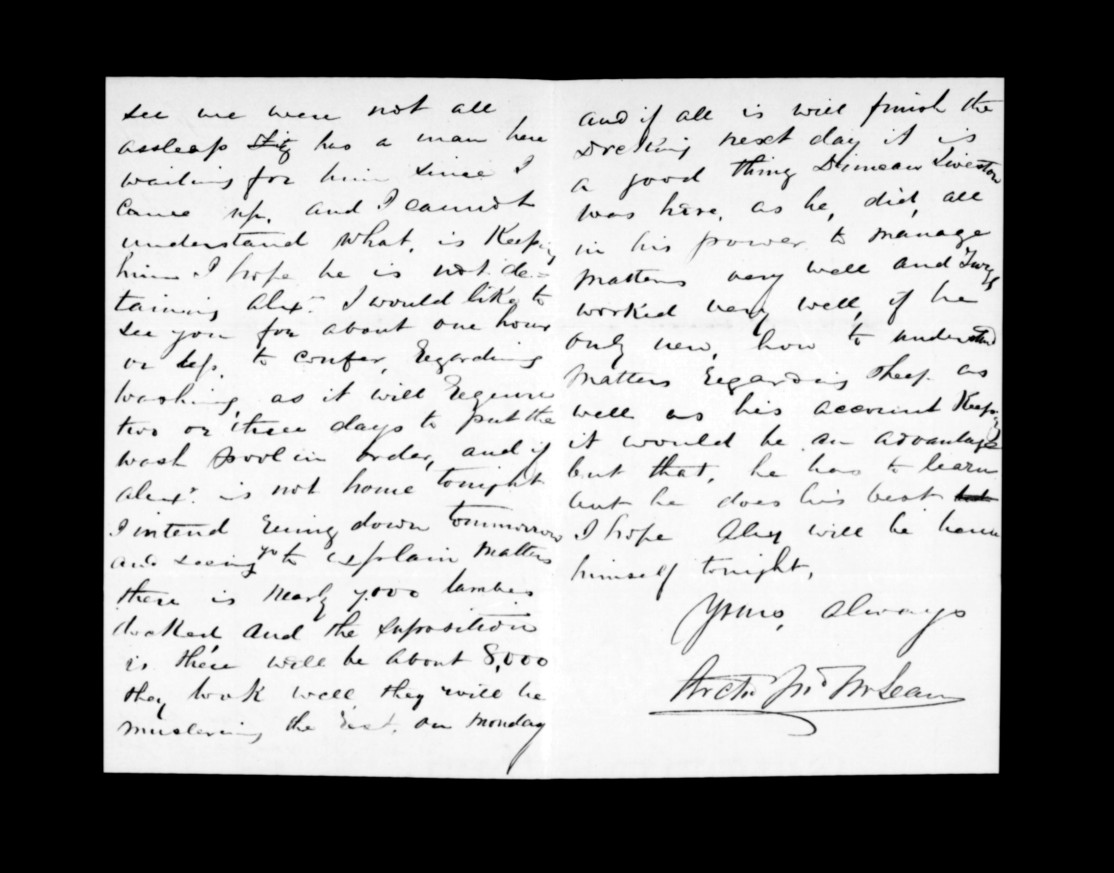 see we were not all
assleap has a man here
waiting for him since I
came up, and I cannot
understand what, is Keeping
him I hope he is not de=
taining Alexr I would like to
see you for about one hour
or less, to confer, Regarding
washing, as it will Require
two or three days to put the
wash pool in order, and if
Alexr. is not home tonight
I intend Runing down tommorrow
and seeing you to explain Matters
there is Nearly 7.000 lambes
docked, and the suposition
is there will be about 8,000
they look well, they will be
mustering the Rest, on Monday
and if all is well finish the
Docking next day it is
a good thing Duncan
was here, as he, did, all
in his power to manage
Matters very well and
worked very well, if he
only new, how to understand
Matters Regarding sheep as
well as his account Keeping
it would be an advantage
but that, he has to learn
but he does his best
I hope Alex will be home
himself tonight,
Yours, always
Archd Jno McLean